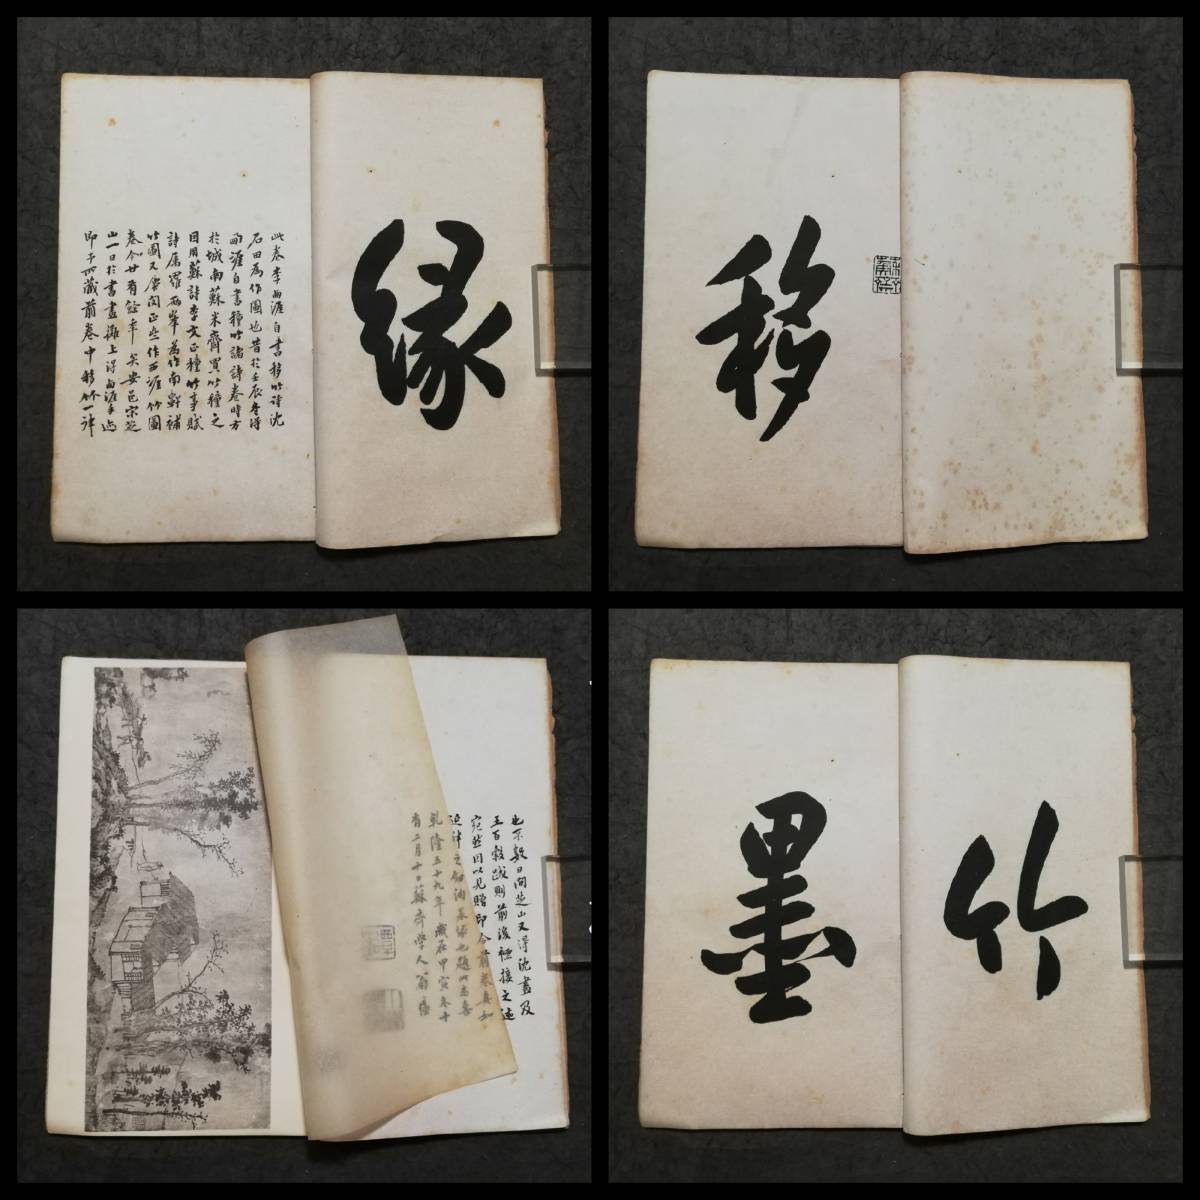 緣
此卷李西涯自書移竹詩沈
石田為作圖也昔於壬辰冬得
西涯自書種竹諸詩卷時方
於城南蘇米齋買竹種之
因用蘇詩李文正種竹事賦
詩屬羅兩峯為作南軒補
竹圖又 作西涯竹圖
卷今廿有餘年矣安邑宋芝
山一日於書畫攤上得西涯手迹
即予所藏前卷中移竹一詩
移
也不數日間芝山又得沈畫及
王百穀跋則前後 接之迹
宛然因以見贈即合前卷真如
延津之劍洵墨緣也題此志喜
乾隆五十九年歲在甲寅冬十
有二月十日蘇齋學人翁
竹
墨